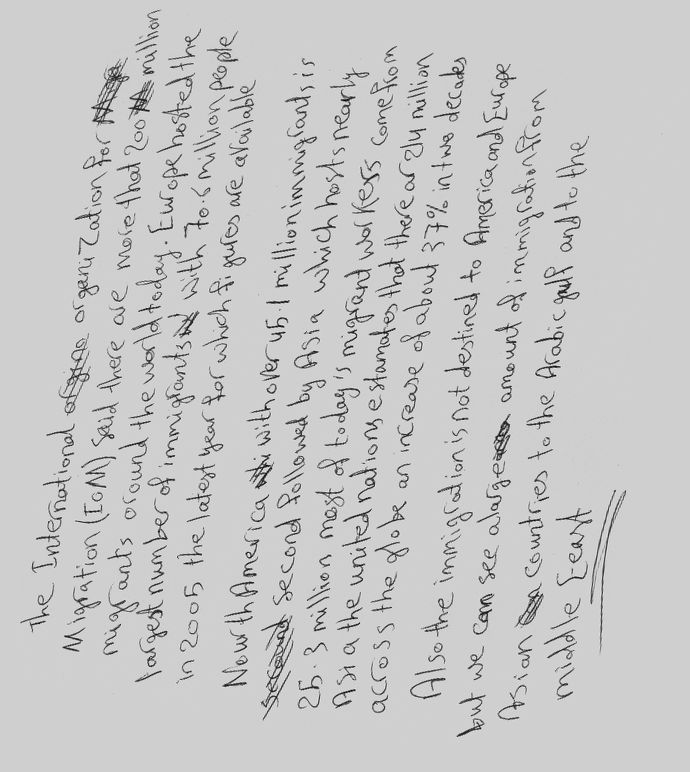 the International organization for
Migration (IoM) said there are more that 200 million
migrants around the world today. Europe hosted the
largest number of immigrants with 70.6 million people
in 2005 the latest year for which figures are available
Nourth America with over 45.1 million immigrants is
second followed by Asia which hosts nearly
25.3 million most of today is migrant workers come from
Asia the united nations estamates that there ar 214 million
across the globe an increase of about 37% in two decades
Also the immigration is not destined to America and Europe
but we can see alarge amount of immigration from
Asian countries to the Arabic gulf and to the
middle Eeast